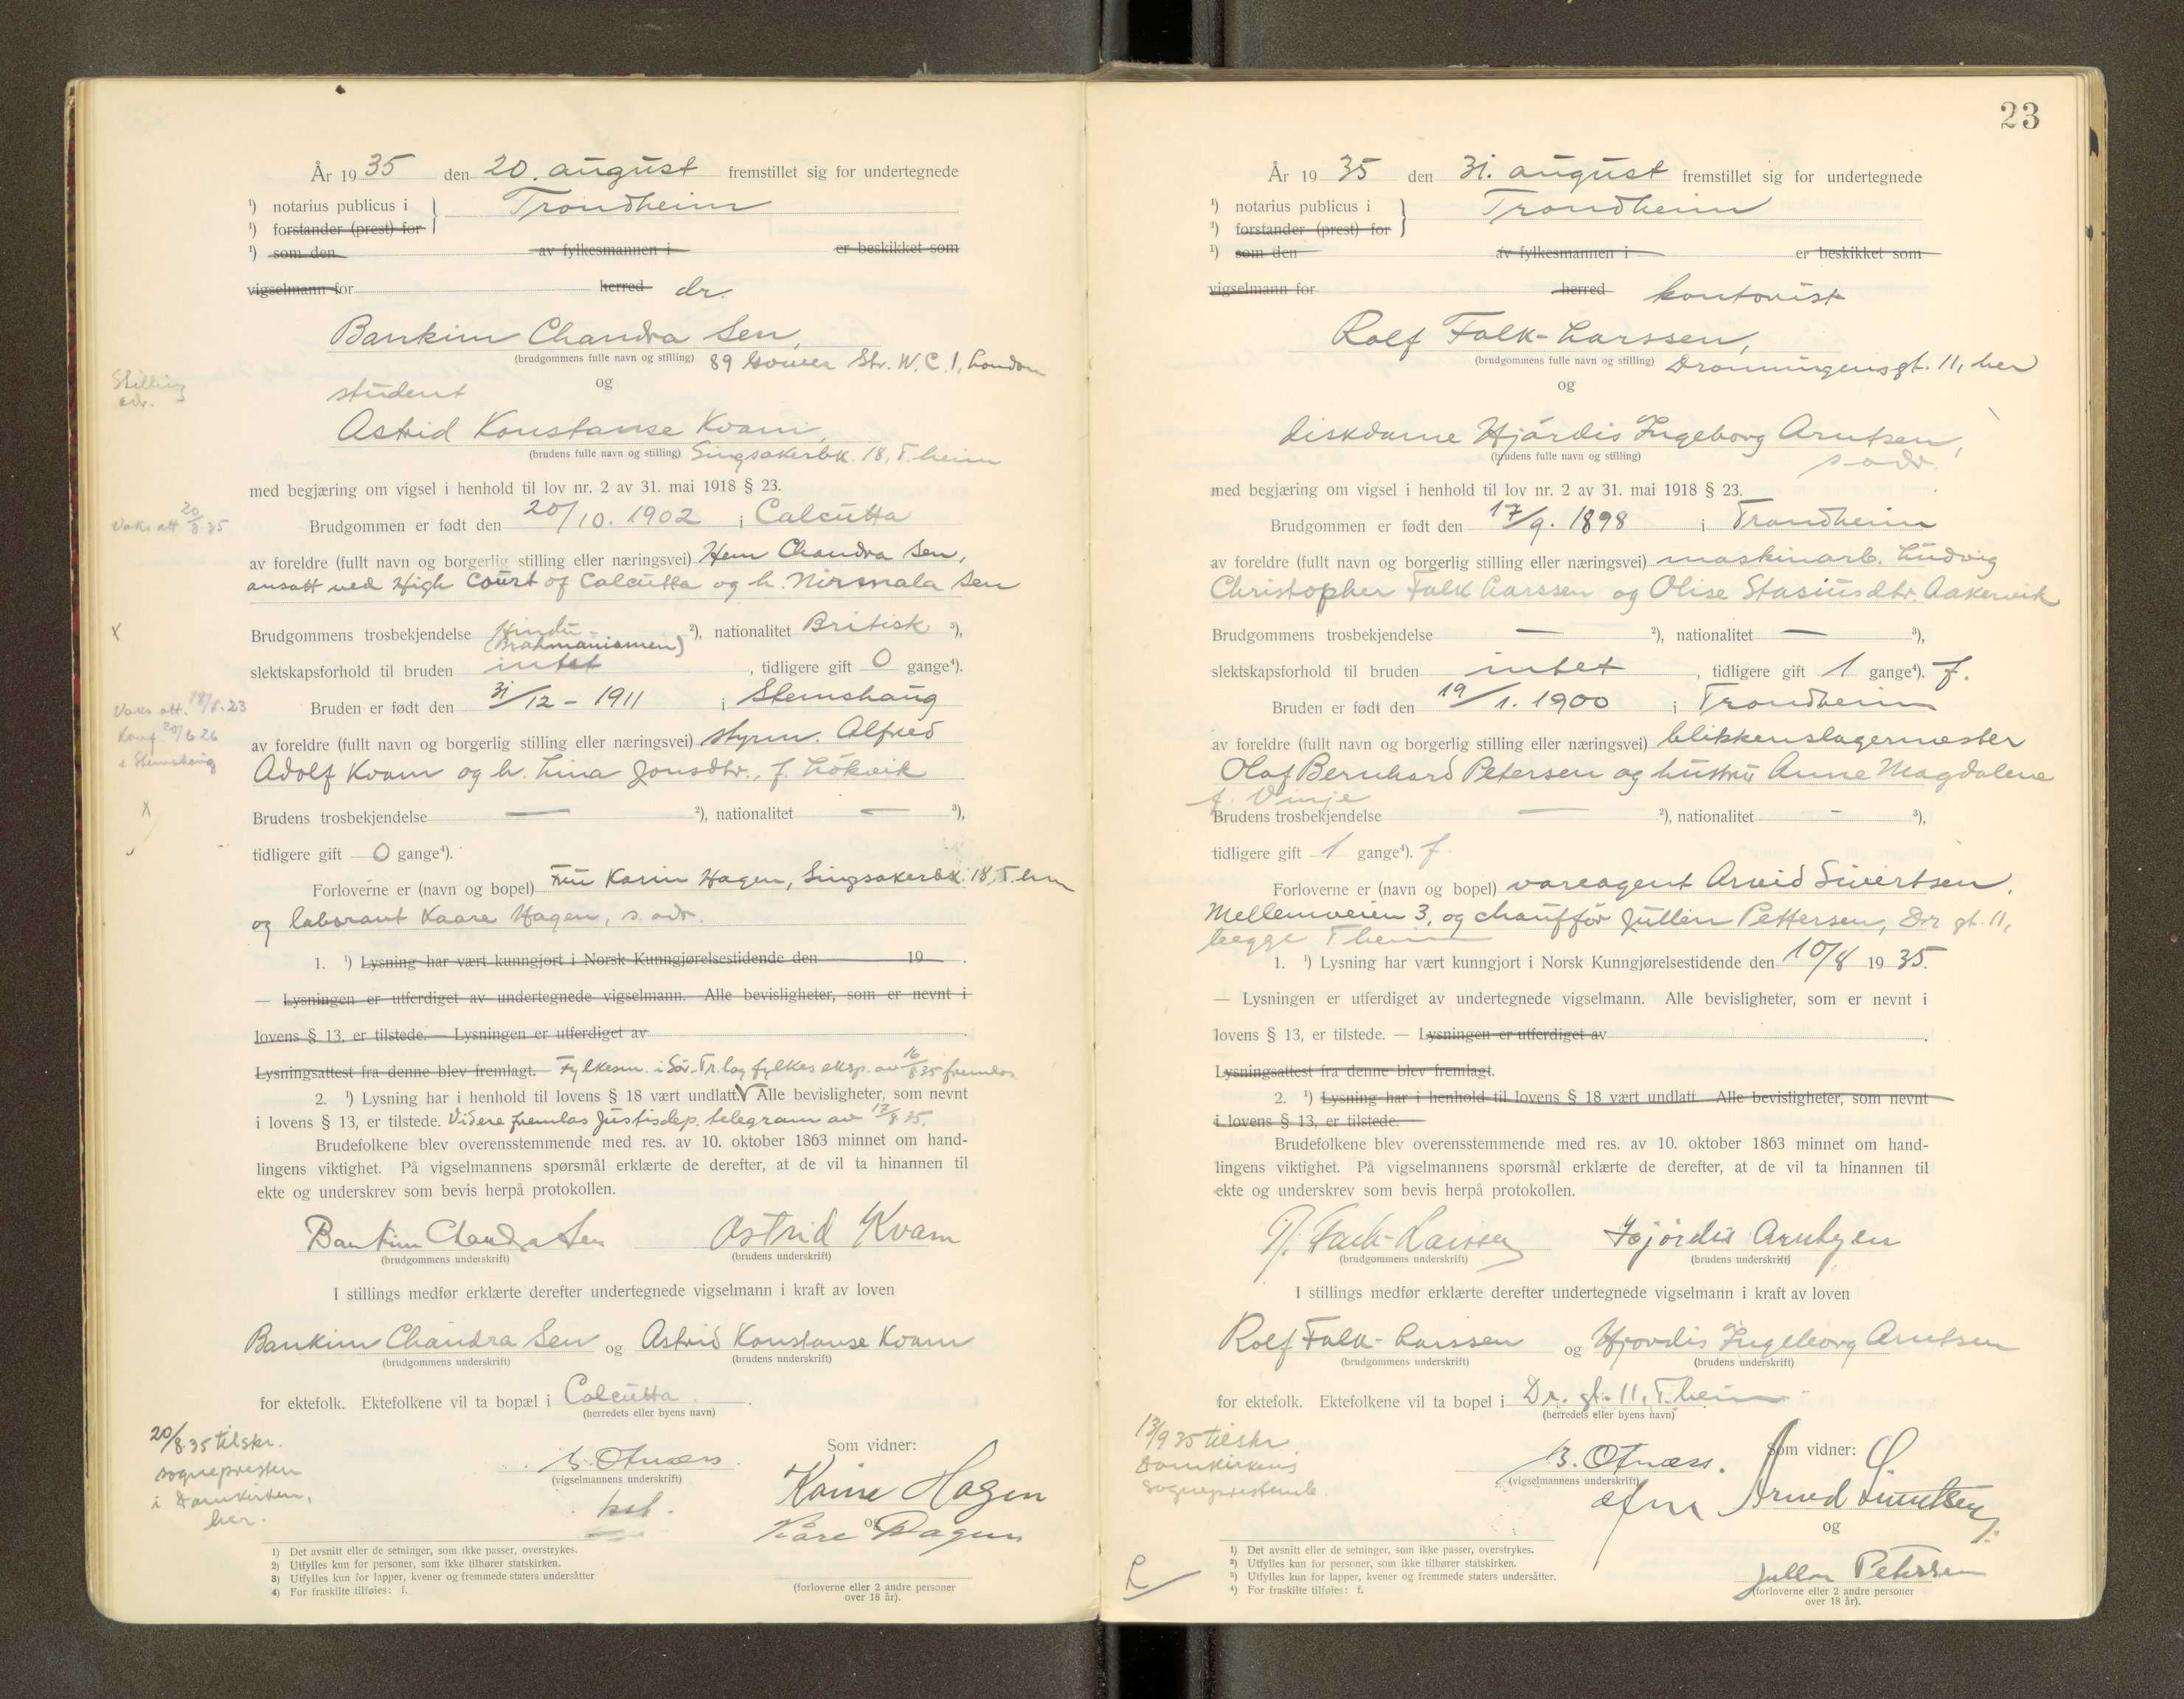 År 19 35 den 20. august fremstillet sig for undertegnede
1) notarius publicus i Trondheim
1) forstander (prest) for
1) som den av fylkesmannen i er beskikket som
vigselmann for herred dr.
Bankim Chandra Sen,
(brudgommens fulle navn og stilling) 89 Gower Str. W.C.1, London
Stilling
adr.
og
student
Astrid Konstanse Kvam,
(brudens fulle navn og stilling) Singsakerbk. 18, T.heim
med begjæring om vigsel i henhold til lov nr. 2 av 31. mai 1918 § 23.
Vaks att 20/8 35
Brudgommen er født den 20/10. 1902 i Calcutta
av foreldre (fullt navn og borgerlig stilling eller næringsvei) Hem Chandra Sen,
ansatt ved High Court of Calcutta og h. Nirmala Sen
x
Brudgommens trosbekjendelse Hindu- (Brahmanismen) 2), nationalitet Britisk 3),
slektskapsforhold til bruden intet, tidligere gift 0 gange4).
Vaks att. 18/7-23
Konf. 20/6 26
i Stemshaug
Bruden er født den 31/12 - 1911 i Stemshaug
av foreldre (fullt navn og borgerlig stilling eller næringsvei) styrm. Alfred
Adolf Kvam og h. Lina Jonsdtr., f. Lökvik
x
Brudens trosbekjendelse — 2), nationalitet — 3),
tidligere gift 0 gange4).
Forloverne er (navn og bopel) Fru Karin Hagen, Singsakerbk. 18, T.hm
og laborant Kaare Hagen, s. adr.
1. 1) Lysning har vært kunngjort i Norsk Kunngjørelsestidende den 19 .
— Lysningen er utferdiget av undertegnede vigselmann. Alle bevisligheter, som er nevnt i
lovens § 13, er tilstede. — Lysningen er utferdiget av .
Lysningsattest fra denne blev fremlagt. Fylkesm. i Sör-Tr.lag fylkes eksp. av 16/8 35 fremlas.
2. 1) Lysning har i henhold til lovens § 18 vært undlatt. V Alle bevisligheter, som nevnt
i lovens § 13, er tilstede. Videre fremlas Justisdep. telegram av 17/8 35.
Brudefolkene blev overensstemmende med res. av 10. oktober 1863 minnet om hand-
lingens viktighet. På vigselmannens spørsmål erklærte de derefter, at de vil ta hinannen til
ekte og underskrev som bevis herpå protokollen.
Bankim Chandra Sen Astrid Kvam
(brudgommens underskrift) (brudens underskrift)
I stillings medfør erklærte derefter undertegnede vigselmann i kraft av loven
Bankim Chandra Sen og Astrid Konstanse Kvam
(brudgommens underskrift) (brudens underskrift)
for ektefolk. Ektefolkene vil ta bopæl i Calcutta.
(herredets eller byens navn)
20/8.35 tilskr.
sognepresten
i Domkirken,
her.
B. Otnæss.
(vigselmannens underskrift)
kst.
Som vidner:
Karin Hagen
og
Kåre Hagen
(forloverne eller 2 andre personer
over 18 år).
1) Det avsnitt eller de setninger, som ikke passer, overstrykes.
2) Utfylles kun for personer, som ikke tilhører statskirken.
3) Utfylles kun for lapper, kvener og fremmede staters undersåtter
4) For fraskilte tilføies: f.
23
År 19 35 den 31. august fremstillet sig for undertegnede
1) notarius publicus i Trondheim
1) forstander (prest) for
1) som den av fylkesmannen i er beskikket som
vigselmann for herred kontorist
Rolf Falk-Larssen,
(brudgommens fulle navn og stilling) Dronningensgt. 11, her
og
diskdame Hjördis Ingeborg Arntsen,
(brudens fulle navn og stilling) s. adr.
med begjæring om vigsel i henhold til lov nr. 2 av 31. mai 1918 § 23.
Brudgommen er født den 17/9. 1898 i Trondheim
av foreldre (fullt navn og borgerlig stilling eller næringsvei) maskinarb. Ludvig
Christopher Falk Larssen og Olise Stasiusdtr. Aakervik
Brudgommens trosbekjendelse — 2), nationalitet — 3),
slektskapsforhold til bruden intet, tidligere gift 1 gange4). f.
Bruden er født den 19/1. 1900 i Trondheim
av foreldre (fullt navn og borgerlig stilling eller næringsvei) blikkenslagermester
Olaf Bernhard Petersen og hustru Anne Magdalene
f. Vinje
Brudens trosbekjendelse — 2), nationalitet - 3),
tidligere gift 1 gange4). f.
Forloverne er (navn og bopel) vareagent Arvid Sivertsen,
Mellemveien 3, og chaufför Jullen Pettersen, Dr. gt. 11,
begge T.heim
1. 1) Lysning har vært kunngjort i Norsk Kunngjørelsestidende den 10/8 19 35.
— Lysningen er utferdiget av undertegnede vigselmann. Alle bevisligheter, som er nevnt i
lovens § 13, er tilstede. — Lysningen er utferdiget av .
Lysningsattest fra denne blev fremlagt.
2. 1) Lysning har i henhold til lovens § 18 vært undlatt Alle bevisligheter, som nevnt
i lovens § 13, er tilstede.
Brudefolkene blev overensstemmende med res. av 10. oktober 1863 minnet om hand-
lingens viktighet. På vigselmannens spørsmål erklærte de derefter, at de vil ta hinannen til
ekte og underskrev som bevis herpå protokollen.
R. Falk-Larssen Hjördis Arntzen
(brudgommens underskrift) (brudens underskrift)
I stillings medfør erklærte derefter undertegnede vigselmann i kraft av loven
Rolf Falk-Larssen og Hjördis Ingeborg Arntsen
(brudgommens underskrift) (brudens underskrift)
for ektefolk. Ektefolkene vil ta bopel i Dr. gt. 11, T.heim
(herredets eller byens navn)
13/9 35 tilskr.
Domkirkens
sogneprestemb.
B. Otnæss.
(vigselmannens underskrift)
Som vidner:
Arvid Sivertsen
og
Jullen Petersen
(forloverne eller 2 andre personer
over 18 år).
1) Det avsnitt eller de setninger, som ikke passer, overstrykes.
2) Utfylles kun for personer, som ikke tilhører statskirken.
3) Utfylles kun for lapper, kvener og fremmede staters undersåtter.
4) For fraskilte tilføies: f.